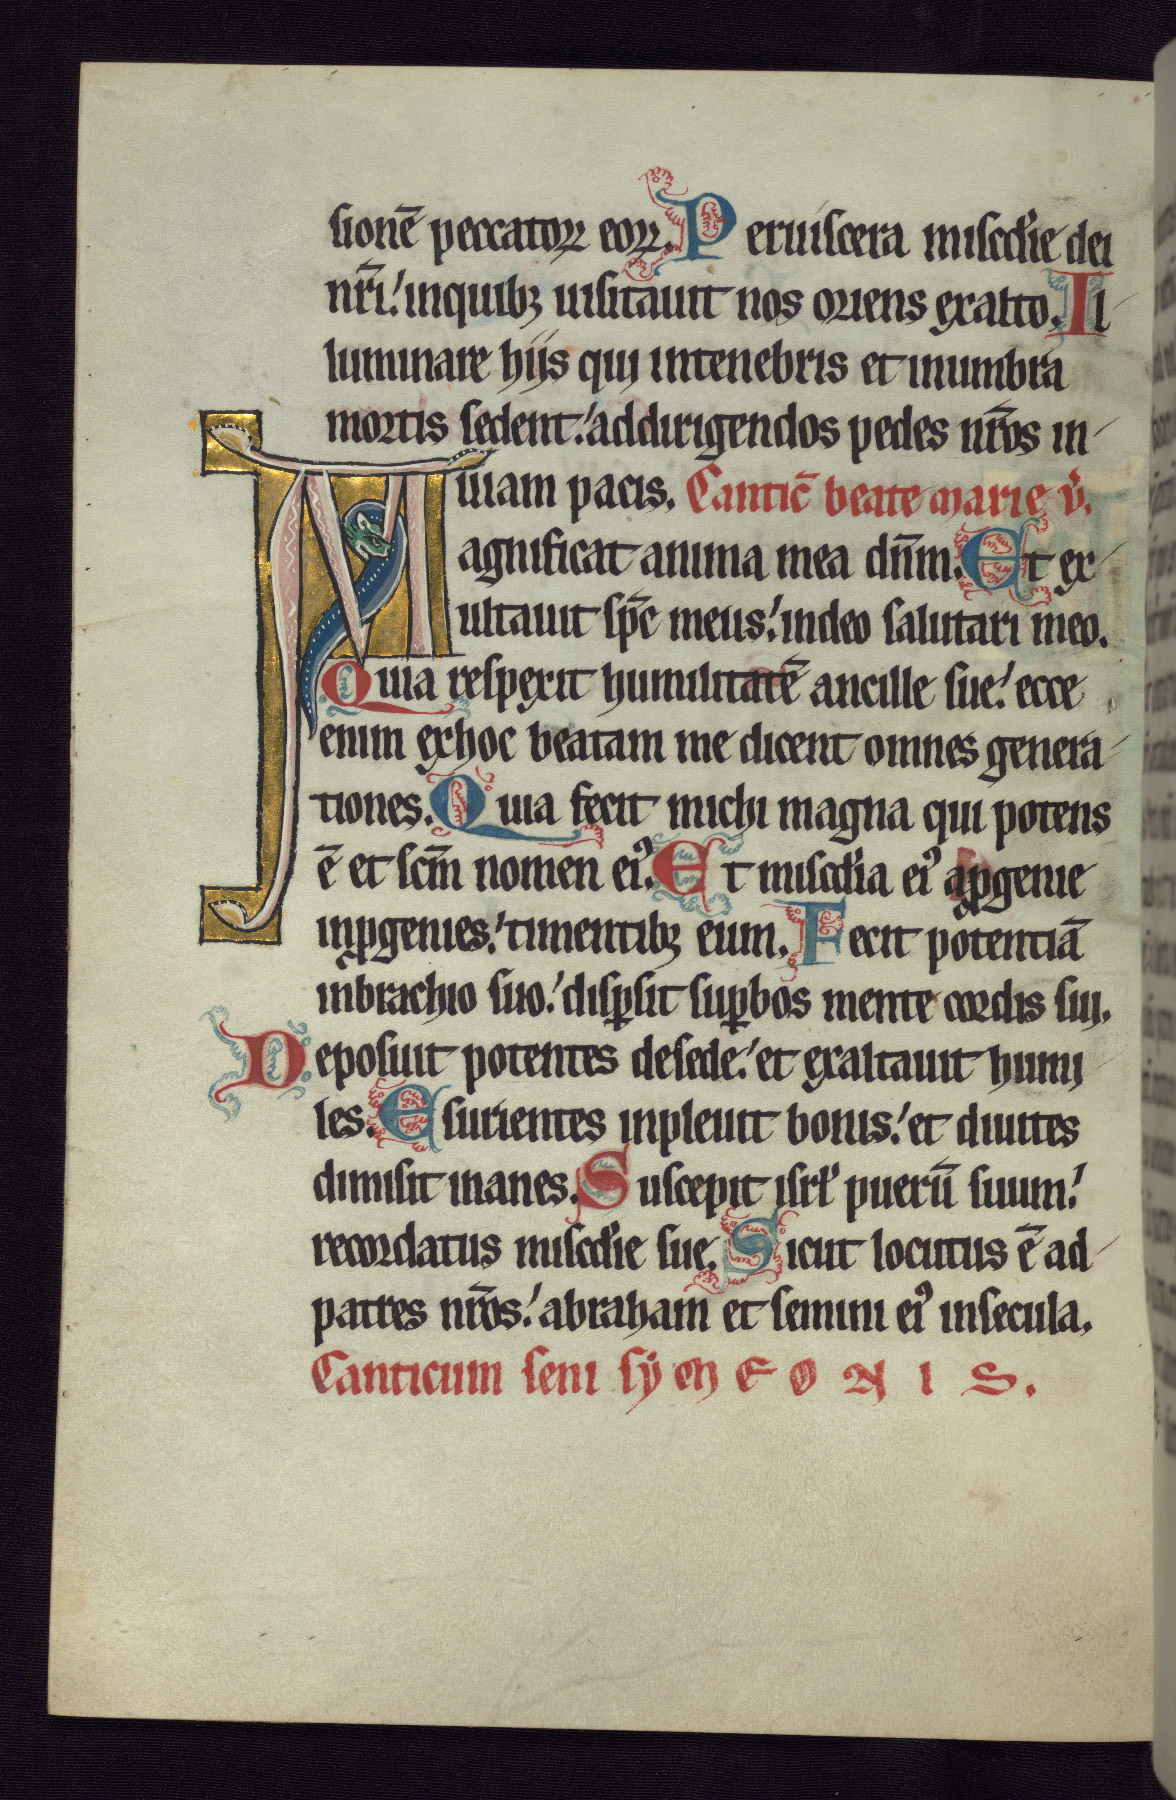 sionē peccatoꝝ eoꝝ. Per uiscera miscd'ie dei
nr̄i! inquibꝫ uisitauit nos oriens exalto. Il-
luminare hijs qui intenebris et inumbra
mortis sedent! addirigendos pedes nr̄os in-
uiam pacis. Cantic̄ beate marie v̾.
Magnificat anima mea dn̄m. Et ex-
ultauit sp̄c meus! indeo salutari meo.
Quia respexit humilitatē ancille sue! ecce
enim exhoc beatam me dicent omnes genera-
tiones. Quia fecit michi magna qui potens
ē et scm̄ nomen eiꝰ. Et miscd'ia eiꝰ aꝓgenie
inꝓgenies! timentibꝫ eum. Fecit potentiā
inbrachio suo! disꝑsit suꝑbos mente cordis sui.
Deposuit potentes desede! et exaltauit humi
les. Esurientes inpleuit bonis! et diuites
dimisit inanes. Suscepit isrl' puerū suum!
recordatus miscd'ie sue. Sicut locutus ē ad-
patres nr̄os! abraham et semini eiꝰ insecula.
Canticum seni sẏmEONIS.